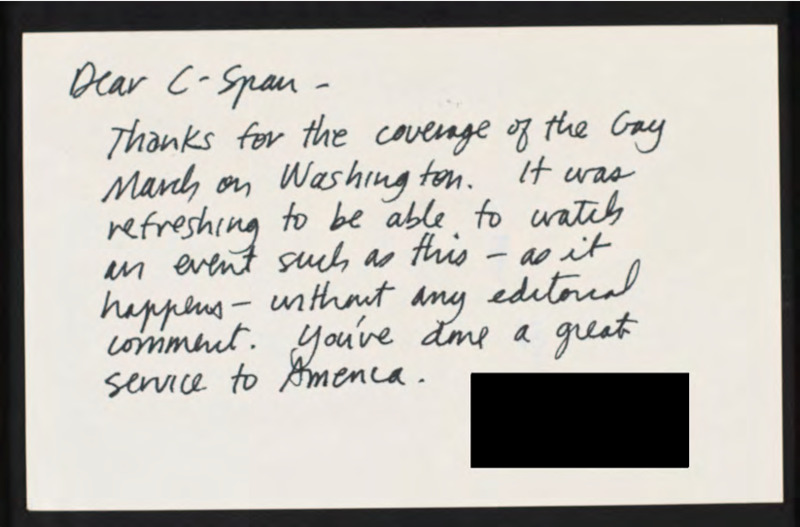 Dear C-Span -
Thanks for the coverage of the Gay
March on Washington. It was
refreshing to be able to watch
an event such as this - as it
happens - without any editorial
comment. You've done a great
service to America.